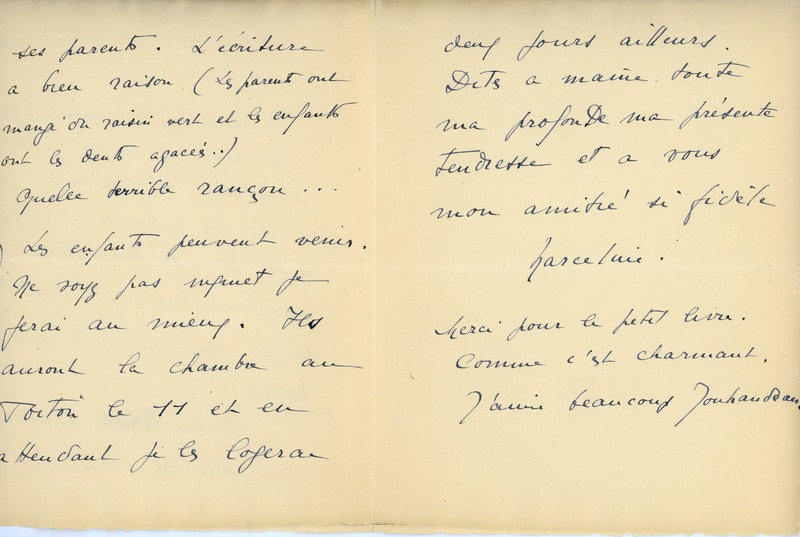 ses parents. L'écriture
a bien raison (Les parents ont
mangé du raisin vert et les enfants
ont les dents agacés..)
Quelle terrible rançon...
Les enfants peuvent venir.
Ne soyez pas inquiet je
ferai au mieux. Ils
auront la chambre au
le 11 et en
attendant je les logerai
deux jours ailleurs.
Dites a maine toute
ma profonde ma présente
tendresse et a vous
mon amitié si fidèle
Marcelline.
Merci pour le petit livre.
Comme c'est charmant.
J'aime beaucoup Jouhandeau.